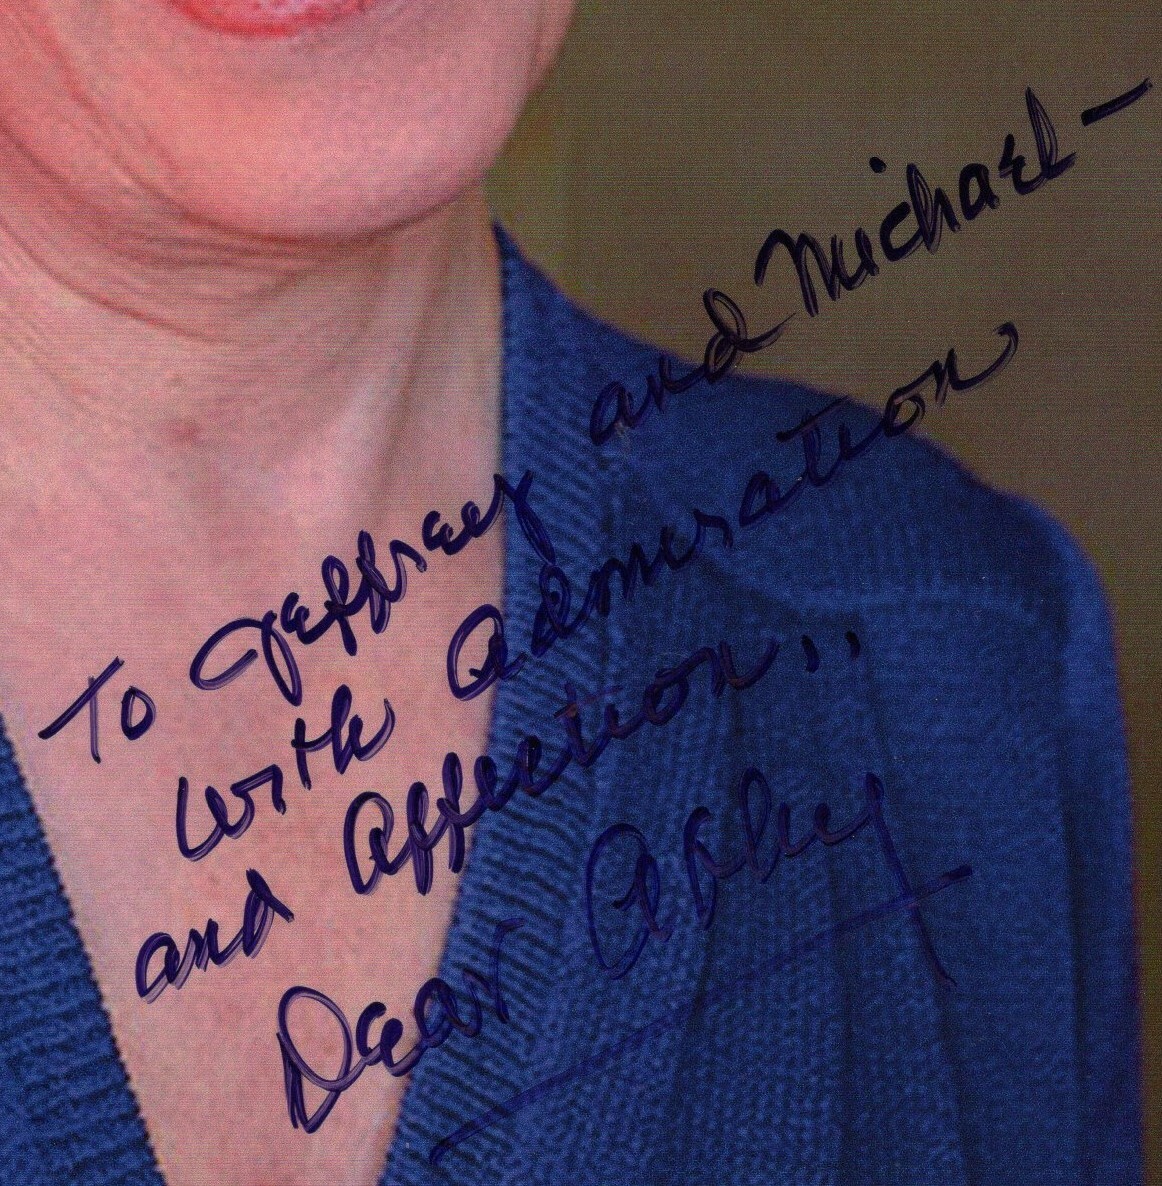 To Jeffrey and Michael –
with Admiration
and Affection..
Dear Abby